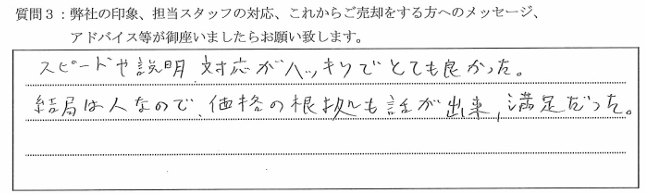 質問３：弊社の印象、担当スタッフの対応、これからご売却をする方へのメッセージ、
アドバイス等が御座いましたらお願い致します。
スピードや説明、対応がハッキリでとても良かった。
結局は人なので、価格の根拠も話が出来、満足だった。